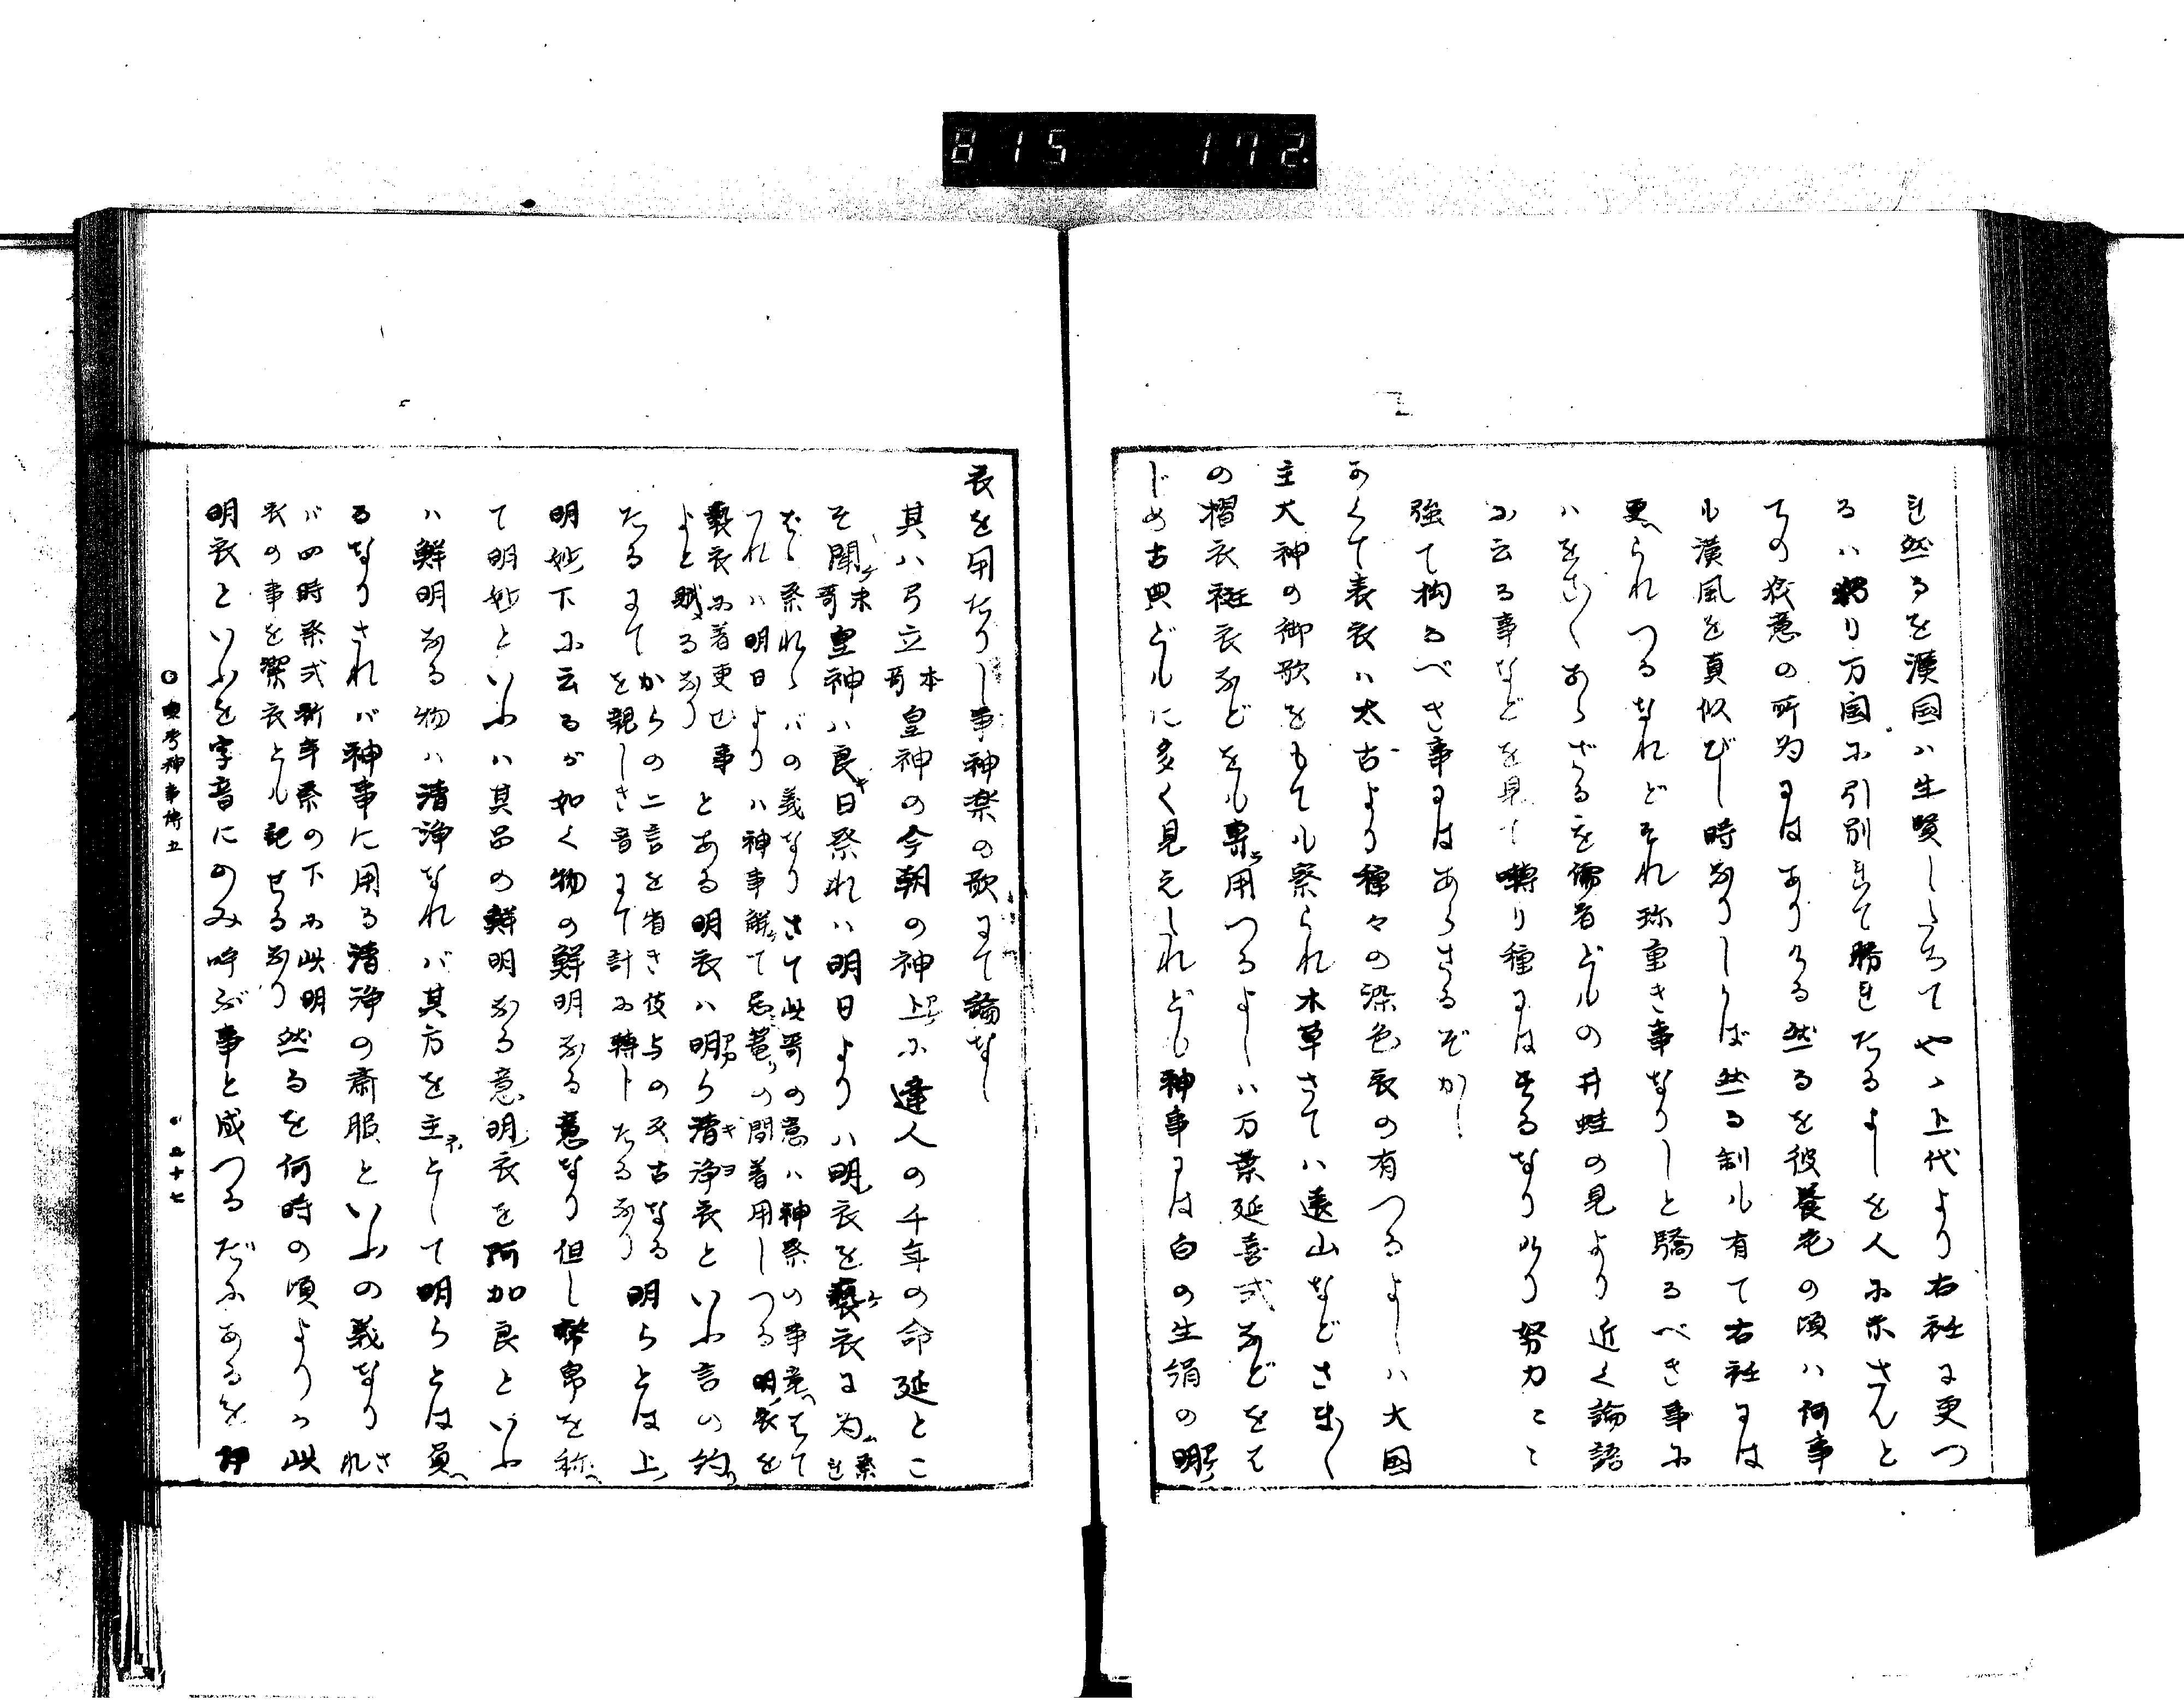 815 172.
を然るを漢国ハ生賢しらちてやゝ上代より右衽に更つ
るハ万国に引別きて勝きたるよしを人に示さんと
ての態意の所為にはありける然るを彼養老の頃ハ何事
も漢風を真似びし時なりしかば然る制も有て右衽には
更られつるなれどそれ珎重き事なりしと驕るべき事に
ハをさ〱あらざるを儒者どもの井蛙の見より近く論語
に云る事などを見て囀り種にはするなりけり努力ここ
強て拘るべき事にはあらざるぞかし
かくて表衣ハ太古より種々の染色衣の有つるよしハ大国
主大神の御歌をもても察られ木草さてハ遠山などさま〱
の摺衣袵衣などをも専用つるよしハ万葉延喜式などをは
じめ古典どもに多く見えしれども神事には白の生絹の明
衣を用たりし事神楽の歌にて論なし
其ハ弓立本哥皇神の今朝の神上に逢人の千年の命延とこ
そ聞ケ末哥皇神ハ良キ日祭れハ明日よりハ明衣を褻ケ衣に為ム祭を
ばゝ祭れゝバの義なりさて此哥の意ハ神祭の事竟へはて
つれハ明日よりハ神事解て忌の間着用しつる明衣を
褻衣に着更む事
よと賦るなり
とある明衣ハ明ら清キヨ浄衣といふ言の約
たるにて
からの二言を省き伎与の反古なる
を親しき音にて計に轉したるなり
明らとは上
明妙下に云るが如く物の鮮明なる意なり但し幣帛を称へ
て明妙といふハ其品の鮮明なる意明衣を阿加良といふ
ハ鮮明なる物ハ清浄なれバ其方を主ネとして明らとは負へ
るなりされバ神事に用る清浄の斎服といふの義なりされ
バ四時祭式祈年祭の下に此明
衣の事を潔衣とも記せるなり
然るを何時の頃よりか此
明衣といふを字音にのみ呼ぶ事と成つるだにあるを
神事傳五
五十七